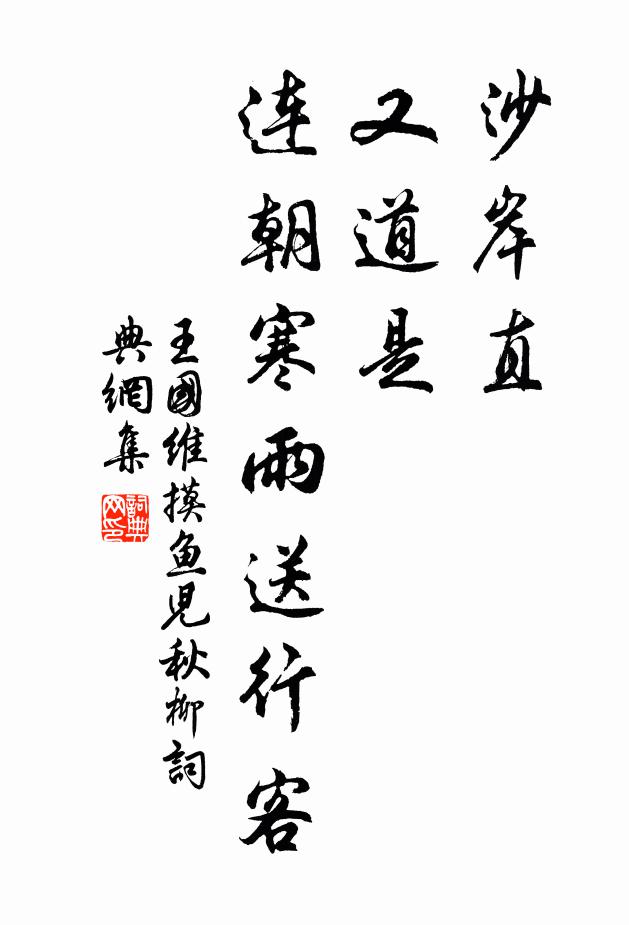 沙岸直
又道是
連朝寒雨送行客
王國維摸鱼児秋柳詞
典網集
詞典
网印